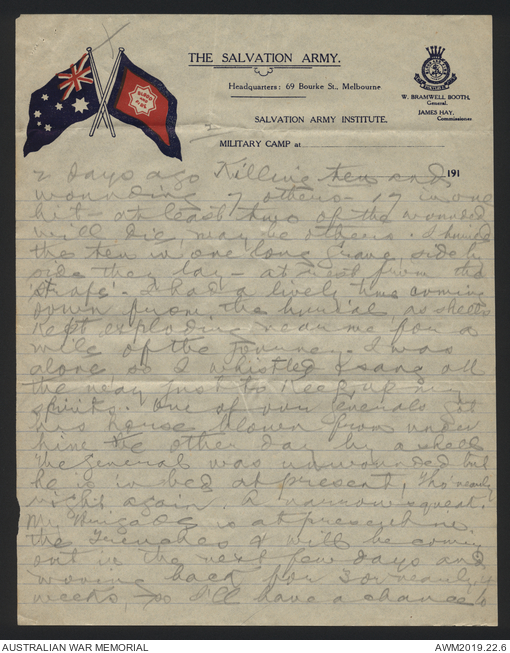 THE SALVATION ARMY.
Headquarters: 69 Bourke St., Melbourne
W. BRAMWELL BOOTH,
General.
JAMES HAY,
Commissioner
SALVATION ARMY INSTITUTE.
MILITARY CAMP at
191
BLOOD AND FIRE
2
2 days ago Killing ten and
wounding 7 others - 17 in one
hit - at least two of the wounded
will die, may be others. I buried
the ten in one long Grave, side by
side they lay - at rest from the
'strafe'. I had a lively time coming
down from the burial as shells
kept exploding near me for a
mile of the journey. I was
alone so I whistled & sang all
the way just to keep up my
spirits. One of our Generals got
his horse blown from under
him the other day by a shell
The General was unwounded but
he is in bed at present, tho' nearly
right again. A narrow squeak.
My Brigade is at present in
the Trenches & will be coming
out in the next few days and
moving back for 3 or nearly 4
weeks, so I'll have a chance to
AUSTRALIAN WAR MEMORIAL
AWM2019.22.6